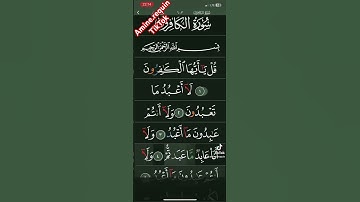 Amine.requin
TikTok
سُورَةُ الْكَافِرُونَ
بِسْمِ اللَّهِ الرَّحْمَٰنِ الرَّحِيمِ
قُلْ يَٰٓأَيُّهَا ٱلْكَٰفِرُونَ
١ لَآ أَعْبُدُ مَا
تَعْبُدُونَ ٢ وَلَآ أَنتُمْ
عَٰبِدُونَ مَآ أَعْبُدُ ٣ وَلَآ
أَنَا۠ عَابِدٌ مَّا عَبَدتُّمْ ٤ وَلَآ
أَنتُمْ عَٰبِدُونَ مَآ أَعْبُدُ